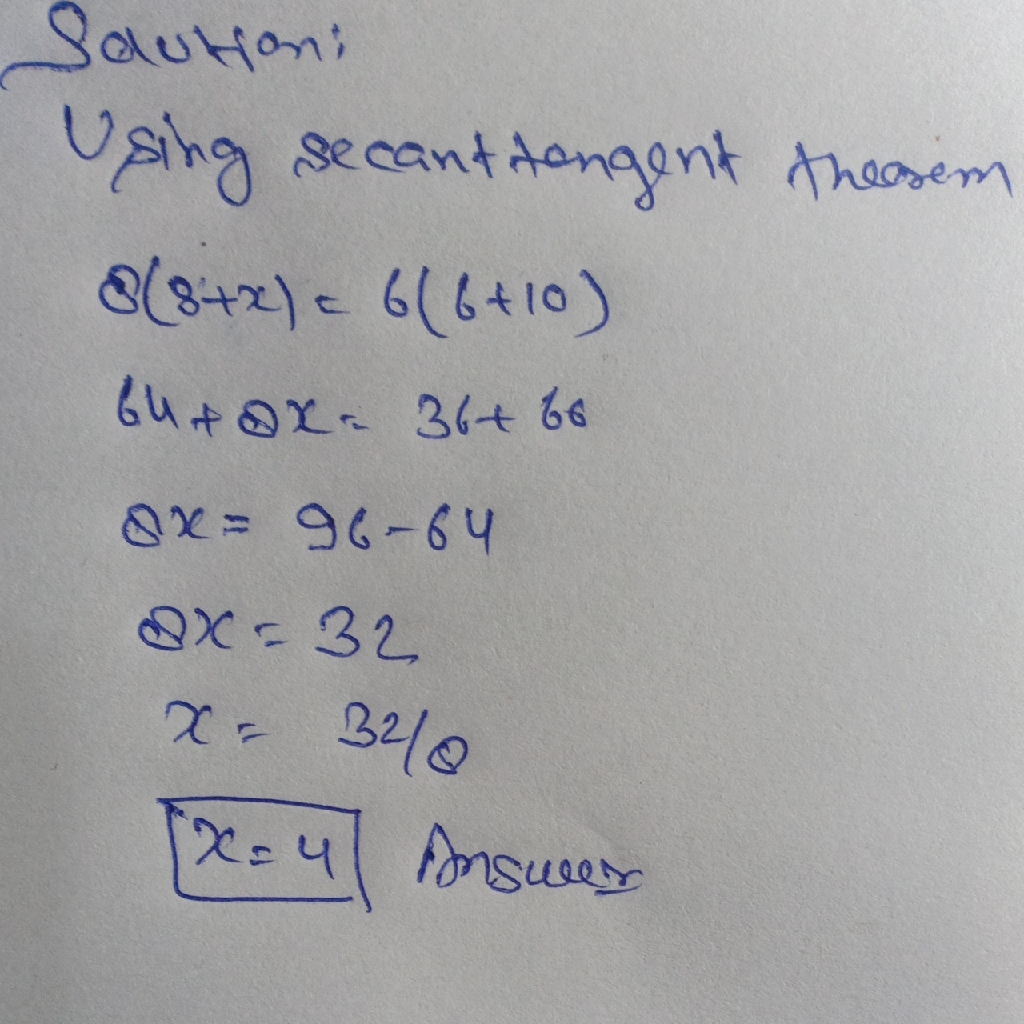 Solution:
Using secant tangent theorem
8(8+x) = 6(6+10)
64+8x = 36+60
8x = 96-64
8x = 32
x = 32/8
x=4 Answer